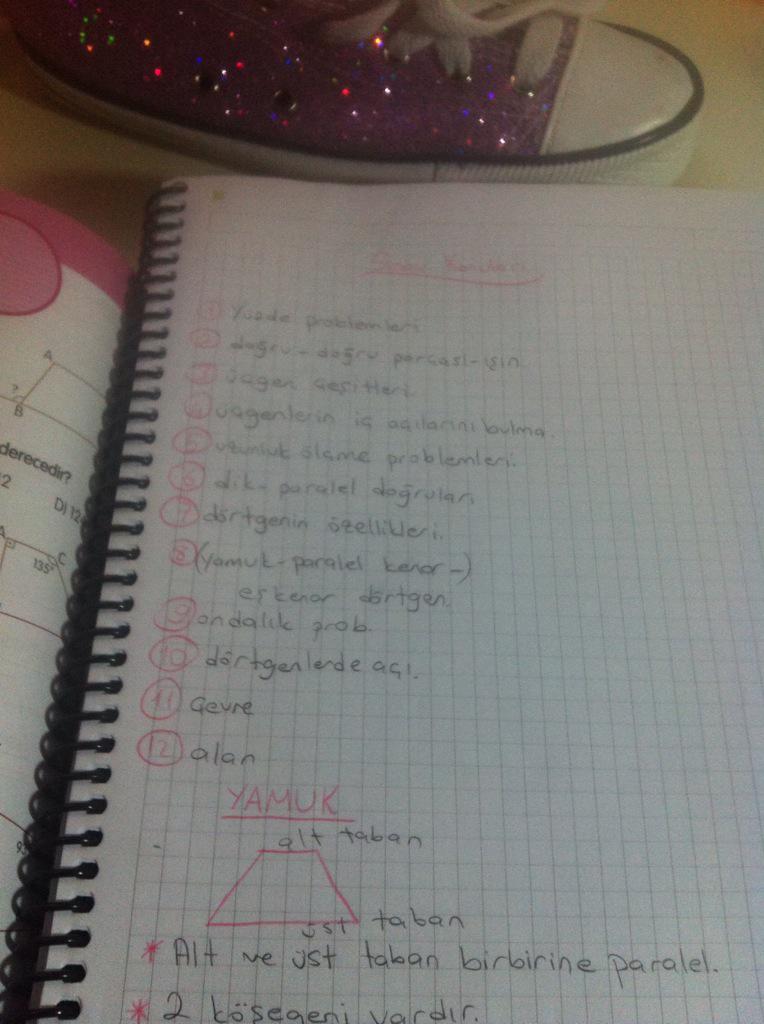 Sınav Konuları
1 Yüzde problemleri
2 doğru - doğru parçası - ışın
3 üçgen çeşitleri
4 üçgenlerin iç açılarını bulma.
5 uzunluk ölçme problemleri.
6 dik - paralel doğrular
7 dörtgenin özellikleri.
8 (yamuk - paralel kenar -)
eşkenar dörtgen.
9 ondalık prob.
10 dörtgenlerde açı.
11 çevre
12 alan
YAMUK
alt taban
üst taban
* Alt ve üst taban birbirine paralel.
* 2 köşegeni vardır.
A
?
B
derecedir?
2
D) 12
A
C
135°